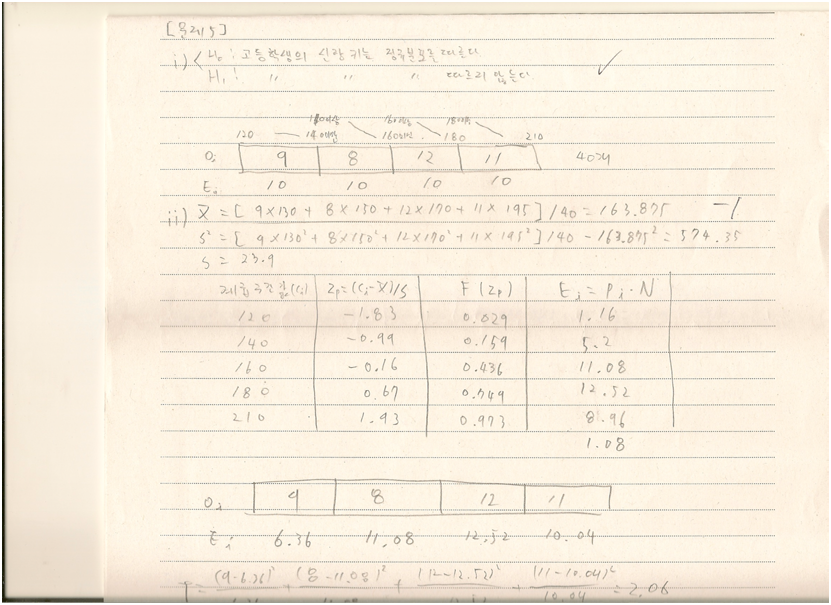 [문제5]
i) < H₀ : 고등학생의 신장 키는 정규분포를 따른다 ✓
H₁ : 〃 〃 따르지 않는다.
160이상 180이상
120 — 140미만 160미만 180 210
Oᵢ 9 8 12 11 40개
Eᵢ 10 10 10 10
ii) X̄ = [ 9×130 + 8×150 + 12×170 + 11×195 ] /40 = 163.875 -1
S² = [ 9×130² + 8×150² + 12×170² + 11×195² ] /40 - 163.875² = 574.35
S = 23.9
계급구간 (Cᵢ) Zₚ=(Cᵢ-X̄)/S F(Zₚ) Eᵢ = Pᵢ·N
120 -1.83 0.029 1.16
140 -0.99 0.159 5.2
160 -0.16 0.436 11.08
180 0.67 0.749 12.52
210 1.93 0.973 8.96
1.08
Oᵢ 9 8 12 11
Eᵢ 6.36 11.08 12.52 10.04
T = (9-6.36)² + (8-11.08)² + (12-12.52)² + (11-10.04)² = 2.06
10.04